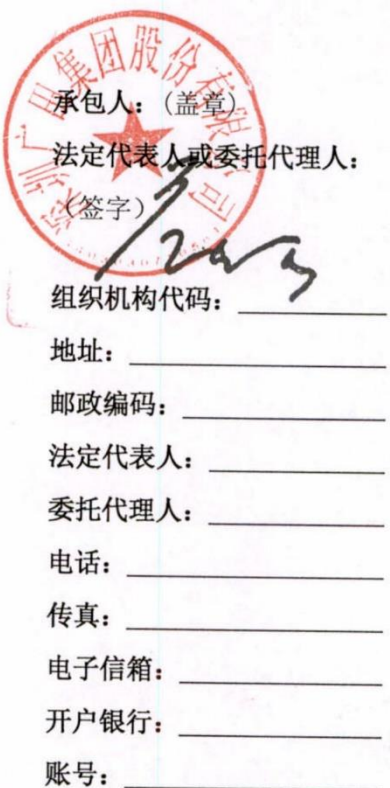 深圳广田集团股份有限公司
承包人：（盖章）
法定代表人或委托代理人：
（签字）
组织机构代码：
地址：
邮政编码：
法定代表人：
委托代理人：
电话：
传真：
电子信箱：
开户银行：
账号：